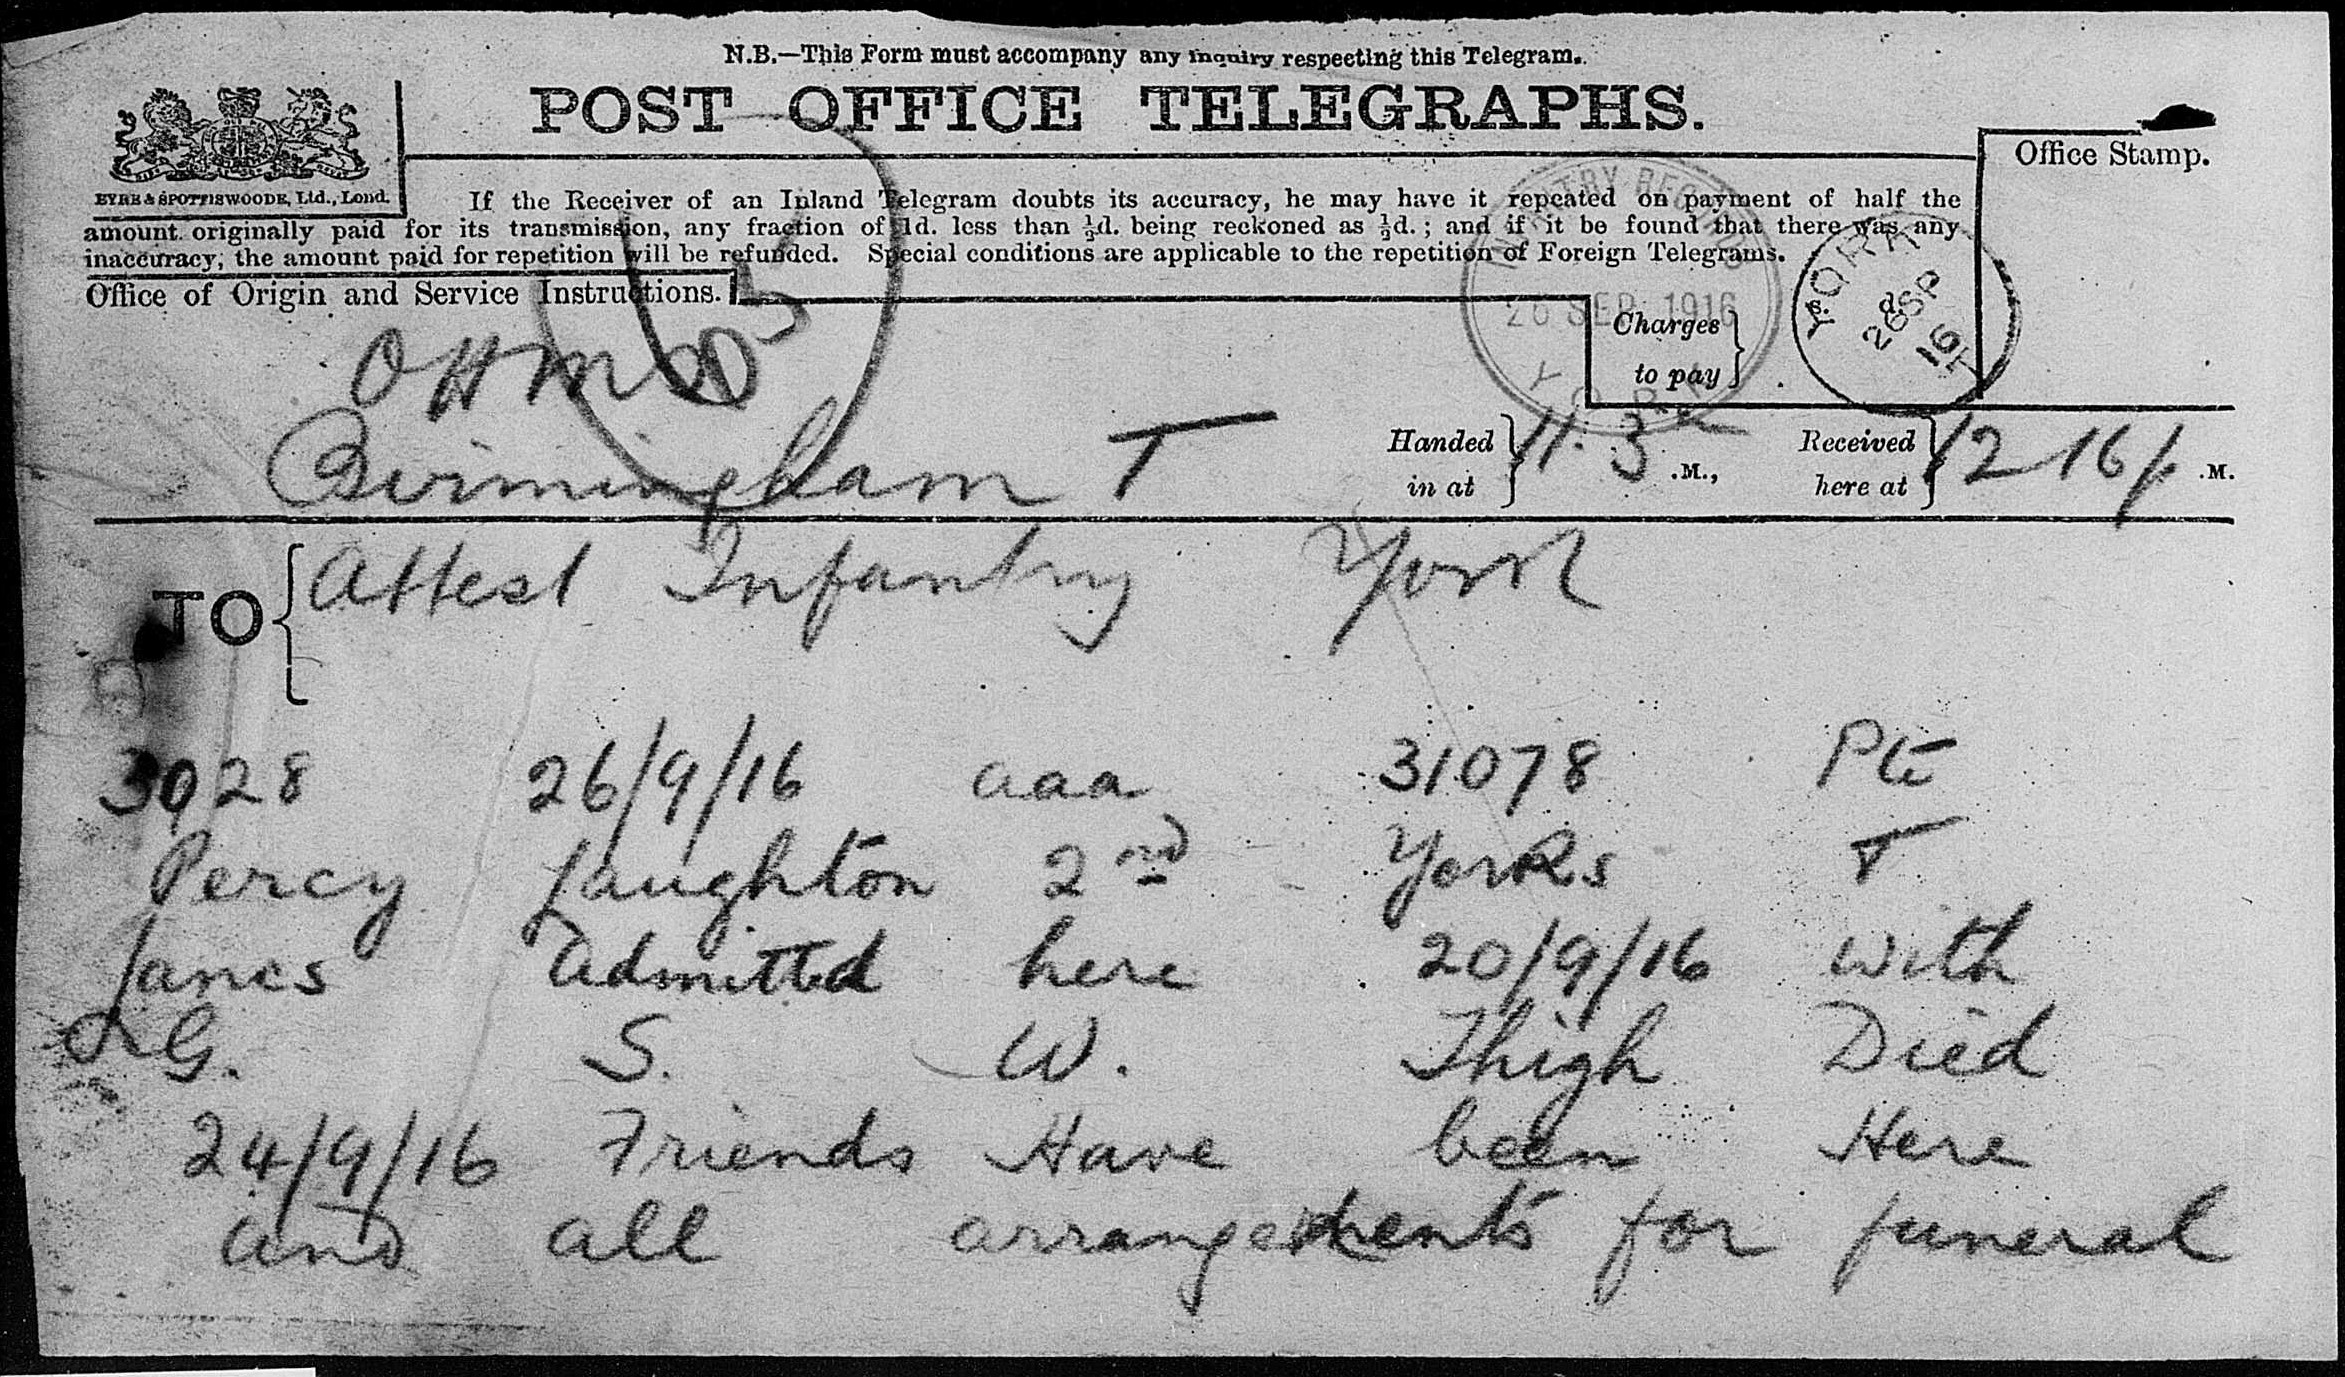 N.B.—This Form must accompany any inquiry respecting this Telegram.
POST OFFICE TELEGRAPHS.
EYRE & SPOTTISWOODE, Ltd., Lond.
Office Stamp.
If the Receiver of an Inland Telegram doubts its accuracy, he may have it repeated on payment of half the
amount originally paid for its transmission, any fraction of 1d. less than ½d. being reckoned as ½d.; and if it be found that there was any
inaccuracy, the amount paid for repetition will be refunded. Special conditions are applicable to the repetition of Foreign Telegrams.
Office of Origin and Service Instructions.
INFANTRY RECORD
26 SEP 1916
YORK
YORK
26 SP
16
Charges
to pay
OHMS
Birmingham T
Handed in at 11.3 .M.,
Received here at 12 16 p .M.
TO Attest Infantry York
3028 26/9/16 aaa 31078 Pte
Percy Laughton 2nd Yorks T
Lancs Admitted here 20/9/16 with
G. S. W. Thigh Died
24/9/16 Friends Have been Here
and all arrangements for funeral